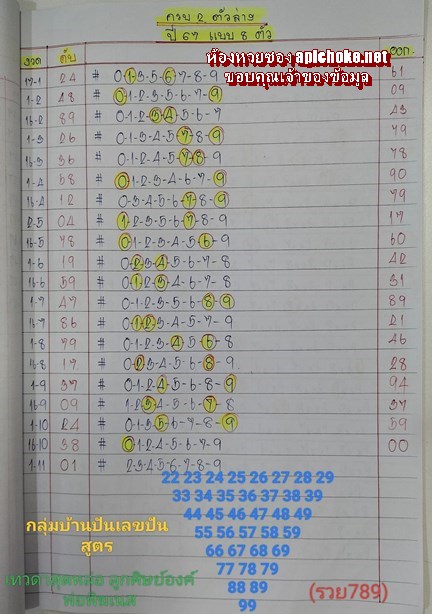 ครบ 2 ตัวล่าง
ปี 67 แบบ 8 ตัว
ห้องหวยซอง apichoke.net
ขอบคุณเจ้าของข้อมูล
งวด ดับ ออก
17-1 24 # 0-1-3-5-6-7-8-9 61
1-2 48 # 0-1-2-3-5-6-7-9 09
16-2 89 # 0-1-2-3-4-5-6-7 43
1-3 26 # 0-1-3-4-5-7-8-9 79
16-3 36 # 0-1-2-4-5-7-8-9 78
1-4 58 # 0-1-2-3-4-6-7-9 90
16-4 12 # 0-3-4-5-6-7-8-9 79
2-5 04 # 1-2-3-5-6-7-8-9 17
16-5 78 # 0-1-2-3-4-5-6-9 60
1-6 19 # 0-2-3-4-5-6-7-8 42
16-6 59 # 0-1-2-3-4-6-7-8 31
1-7 47 # 0-1-2-3-5-6-8-9 89
16-7 86 # 0-1-2-3-4-5-7-9 21
1-8 79 # 0-1-2-3-4-5-6-8 46
16-8 17 # 0-2-3-4-5-6-8-9 28
1-9 37 # 0-1-2-4-5-6-8-9 94
16-9 09 # 1-2-3-4-5-6-7-8 37
1-10 24 # 0-1-3-5-6-7-8-9 59
16-10 38 # 0-1-2-4-5-6-7-9 00
1-11 01 # 2-3-4-5-6-7-8-9
22 23 24 25 26 27 28 29
33 34 35 36 37 38 39
44 45 46 47 48 49
55 56 57 58 59
66 67 68 69
77 78 79
88 89
99
กลุ่มบ้านปันเลขปัน
สูตร
(รวย789)